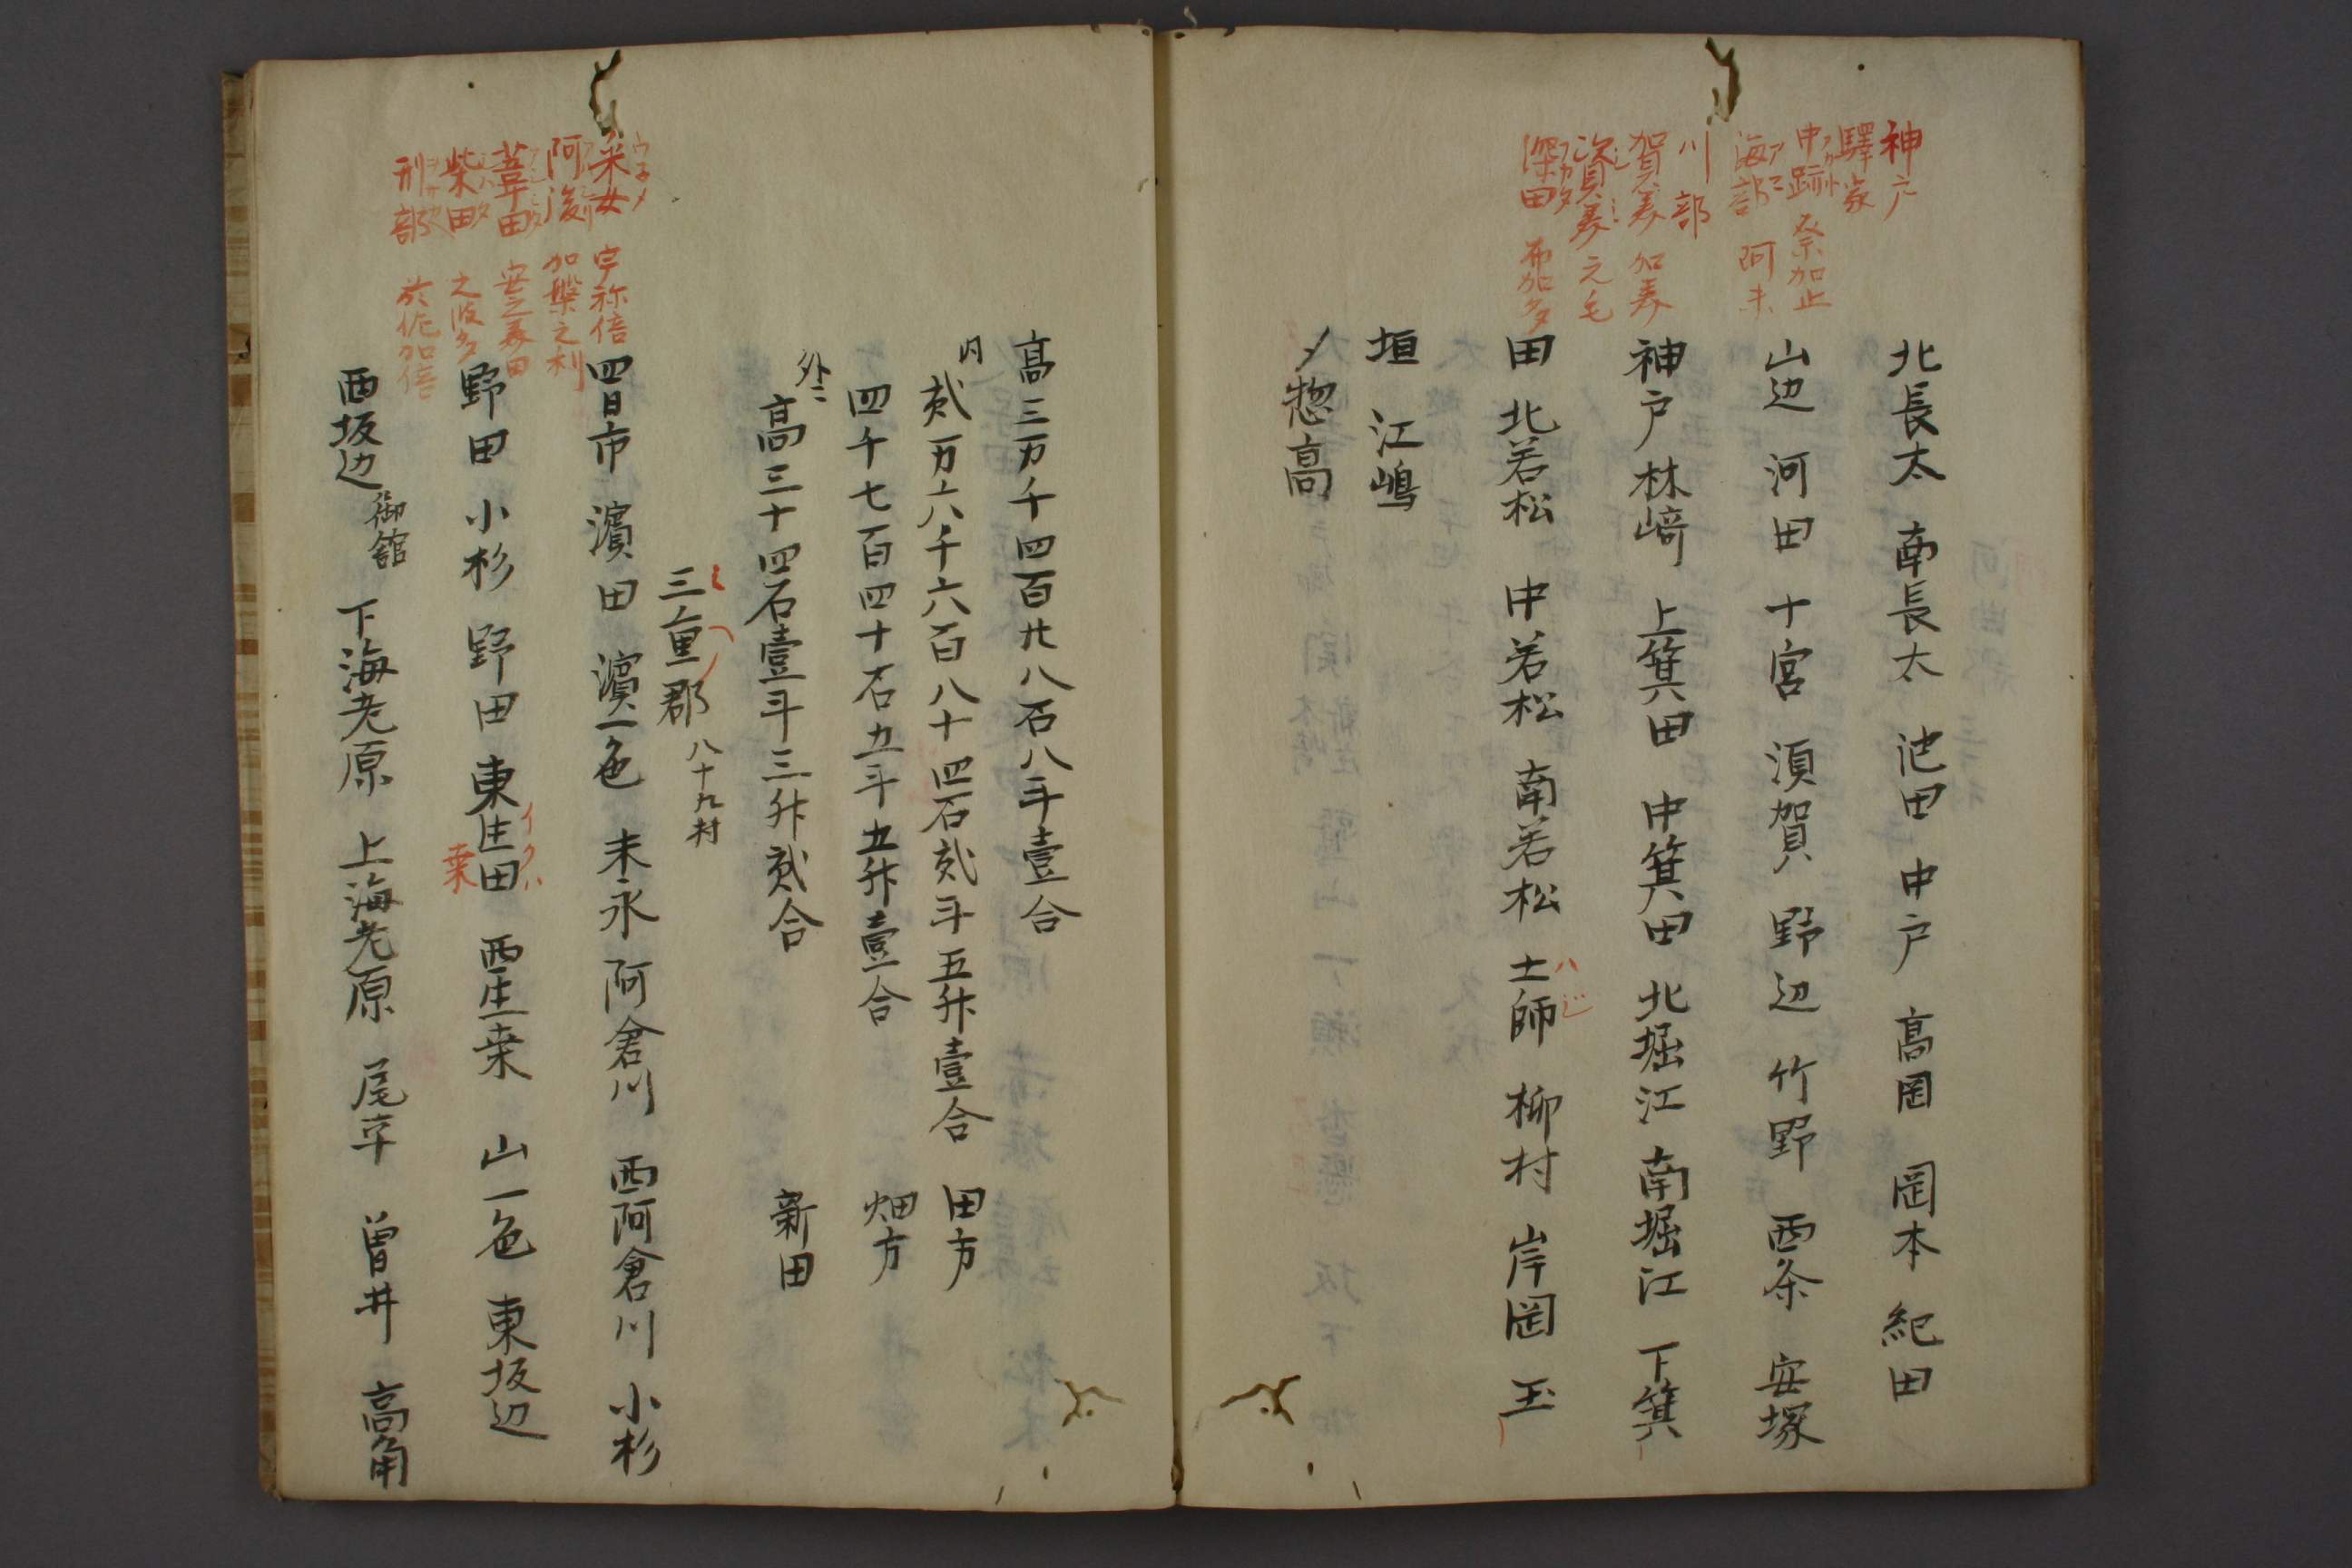 神戸
驛家
中跡 奈加止
海部 阿末
川部
賀美 加美
資美 之毛
深田 布加多
北長太 南長太 池田 中戸 髙岡 岡本 紀田
山辺 河田 十宮 須賀 野辺 竹野 西条 安塚
神戸 林﨑 上箕田 中箕田 北堀江 南堀江 下箕
田 北若松 中若松 南若松 土師 柳村 岸岡 玉
ハジ
垣 江嶋
〆惣髙
髙三万千四百廿八石八斗壹合
内
貮万六千六百八十四石貮斗五升壹合 田方
四千七百四十石五斗五升壹合 畑方
外ニ
髙三十四石壹斗三升貮合 新田
三重郡 八十九村
ミ へノ
采女 宇祢倍
ウネメ
阿後 加
葦田 安之美田
柴田 之波多
刑部 於佐加倍
四日市 濱田 濱一色 末永 阿倉川 西阿倉川 小杉
野田 小杉 野田 東生田 西生桒 山一色 東坂辺
イクハ
桒
西坂辺 御舘 下海老原 上海老原 尾平 曽井 高角